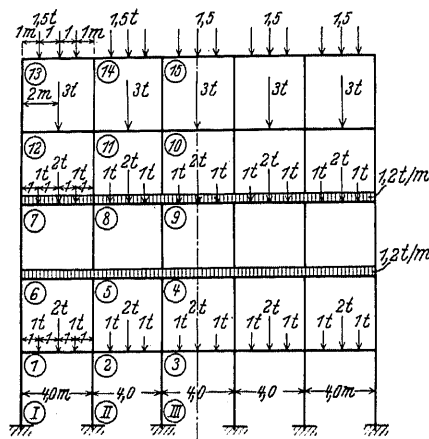 1,5t 1,5t 1,5 1,5 1,5
1m 1 1 1m
13 14 15
2m 3t 3t 3t 3t 3t
12 11 10
1t 2t 1t 1t 2t 1t 1t 2t 1t 1t 2t 1t 1t 2t 1t
1 1 1 1
1,2t/m
7 8 9
1,2t/m
6 5 4
1t 2t 1t 1t 2t 1t 1t 2t 1t 1t 2t 1t 1t 2t 1t
1 1 1 1
1 2 3
4,0m 4,0 4,0 4,0 4,0m
I II III